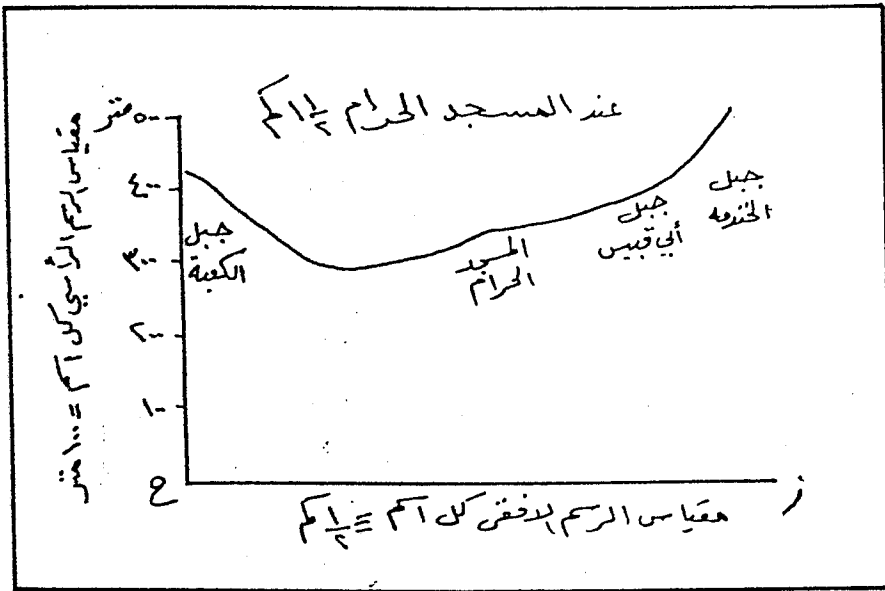 عند المسجد الحرام ١ ١/٢ كم
متر
٥٠٠
٤٠٠
٣٠٠
٢٠٠
١٠٠
مقياس الرسم الرأسي كل ١سم = ١٠٠ متر
جبل
الكعبة
المسجد
الحرام
جبل
أبي قبيس
جبل
الخندمه
ح
ز
مقياس الرسم الافقى كل ١سم = ١/٢ كم